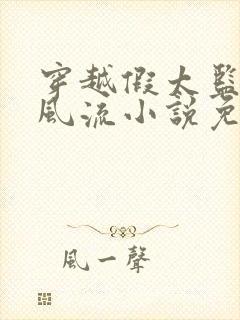 穿越假太監
風流小說免
風一聲